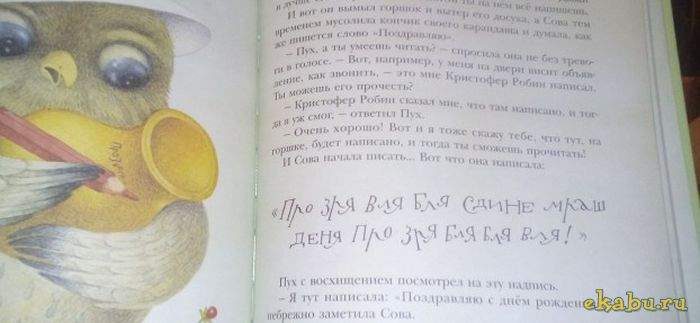 в лучш
ты на нём всё напишешь.
И вот он вымыл горшок и вытер его досуха, а Сова тем
временем мусолила кончик своего карандаша и думала, как
же пишется слово «Поздравляю».
– Пух, а ты умеешь читать? – спросила она не без трево-
ги в голосе. – Вот, например, у меня на двери висит объяв-
ление, как звонить, – это мне Кристофер Робин написал.
Ты можешь его прочесть?
– Кристофер Робин сказал мне, что там написано, и тог-
да я уж смог, – ответил Пух.
– Очень хорошо! Вот и я тоже скажу тебе, что тут, на
горшке, будет написано, и тогда ты сможешь прочитать!
И Сова начала писать... Вот что она написала:
«Про зря вля бля сдине мраш
деня про зря бля бля вля!»
Пух с восхищением посмотрел на эту надпись.
– Я тут написала: «Поздравляю с днём рожден
небрежно заметила Сова.
Про зря
ekabu.ru